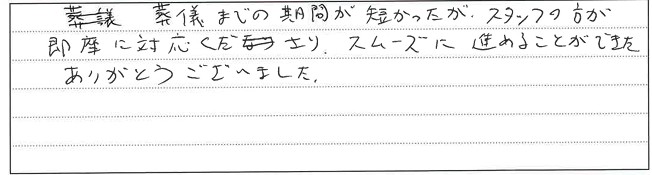 葬儀までの期間が短かったが、スタッフの方が
即座に対応くださり、スムーズに進めることができた
ありがとうございました。